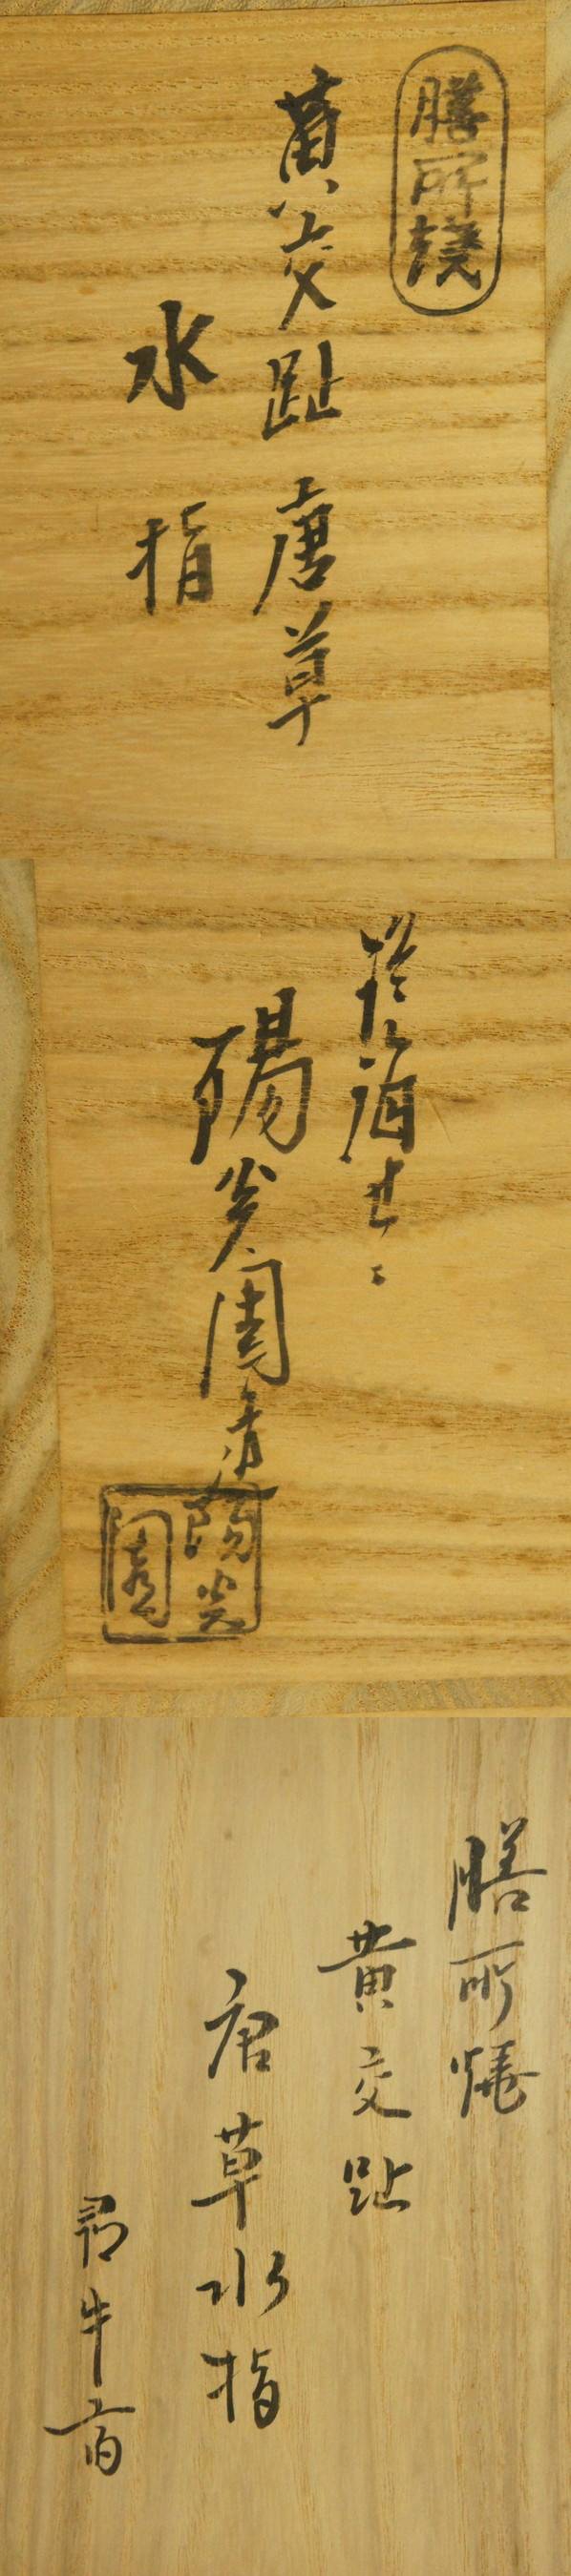 膳所焼
黄交趾唐草
水指
陽炎園造
陽炎園
膳所焼
黄交趾
唐草水指